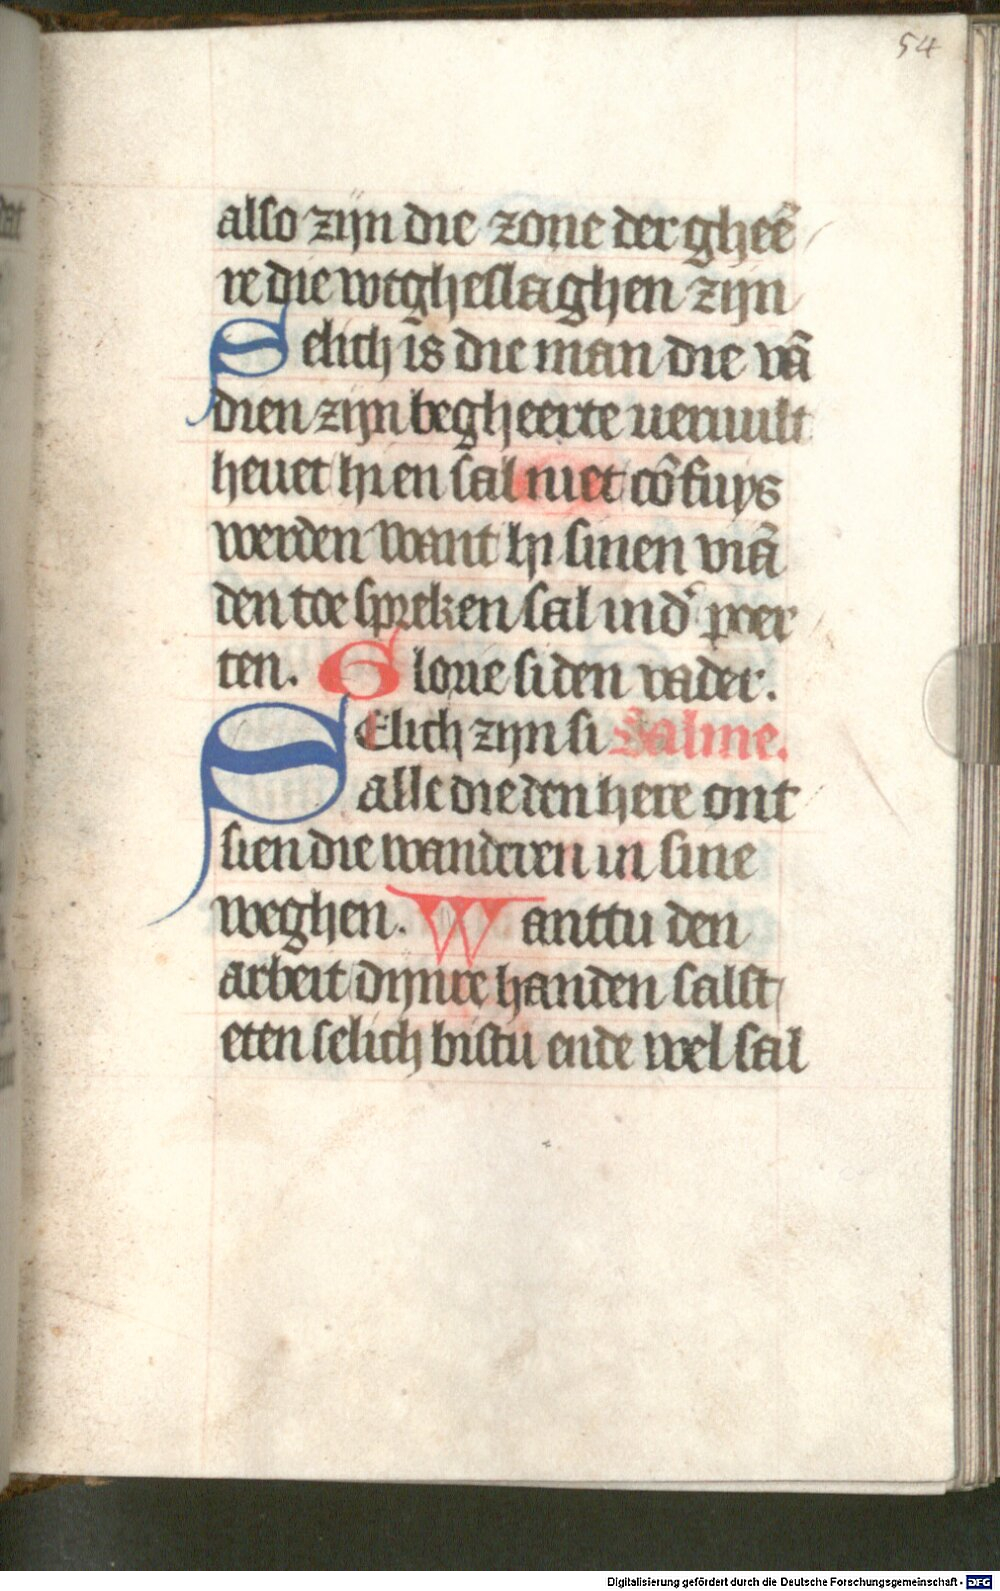 54
also zijn die zone der gheē
re die wtgheslaghen zijn
Selich is die man die vā
dien zijn begheerte uervult
heuet hi en sal niet cōfuys
werden want hi sinen viā
den toe spreken sal in d' poer
ten. Glorie si den vader.
SElich zijn si Salme.
alle die den here ont
sien die wanderen in sine
weghen. Want tu den
arbeit dijnre handen salst
eten selich bistu ende wel sal
Digitalisierung gefördert durch die Deutsche Forschungsgemeinschaft - DFG